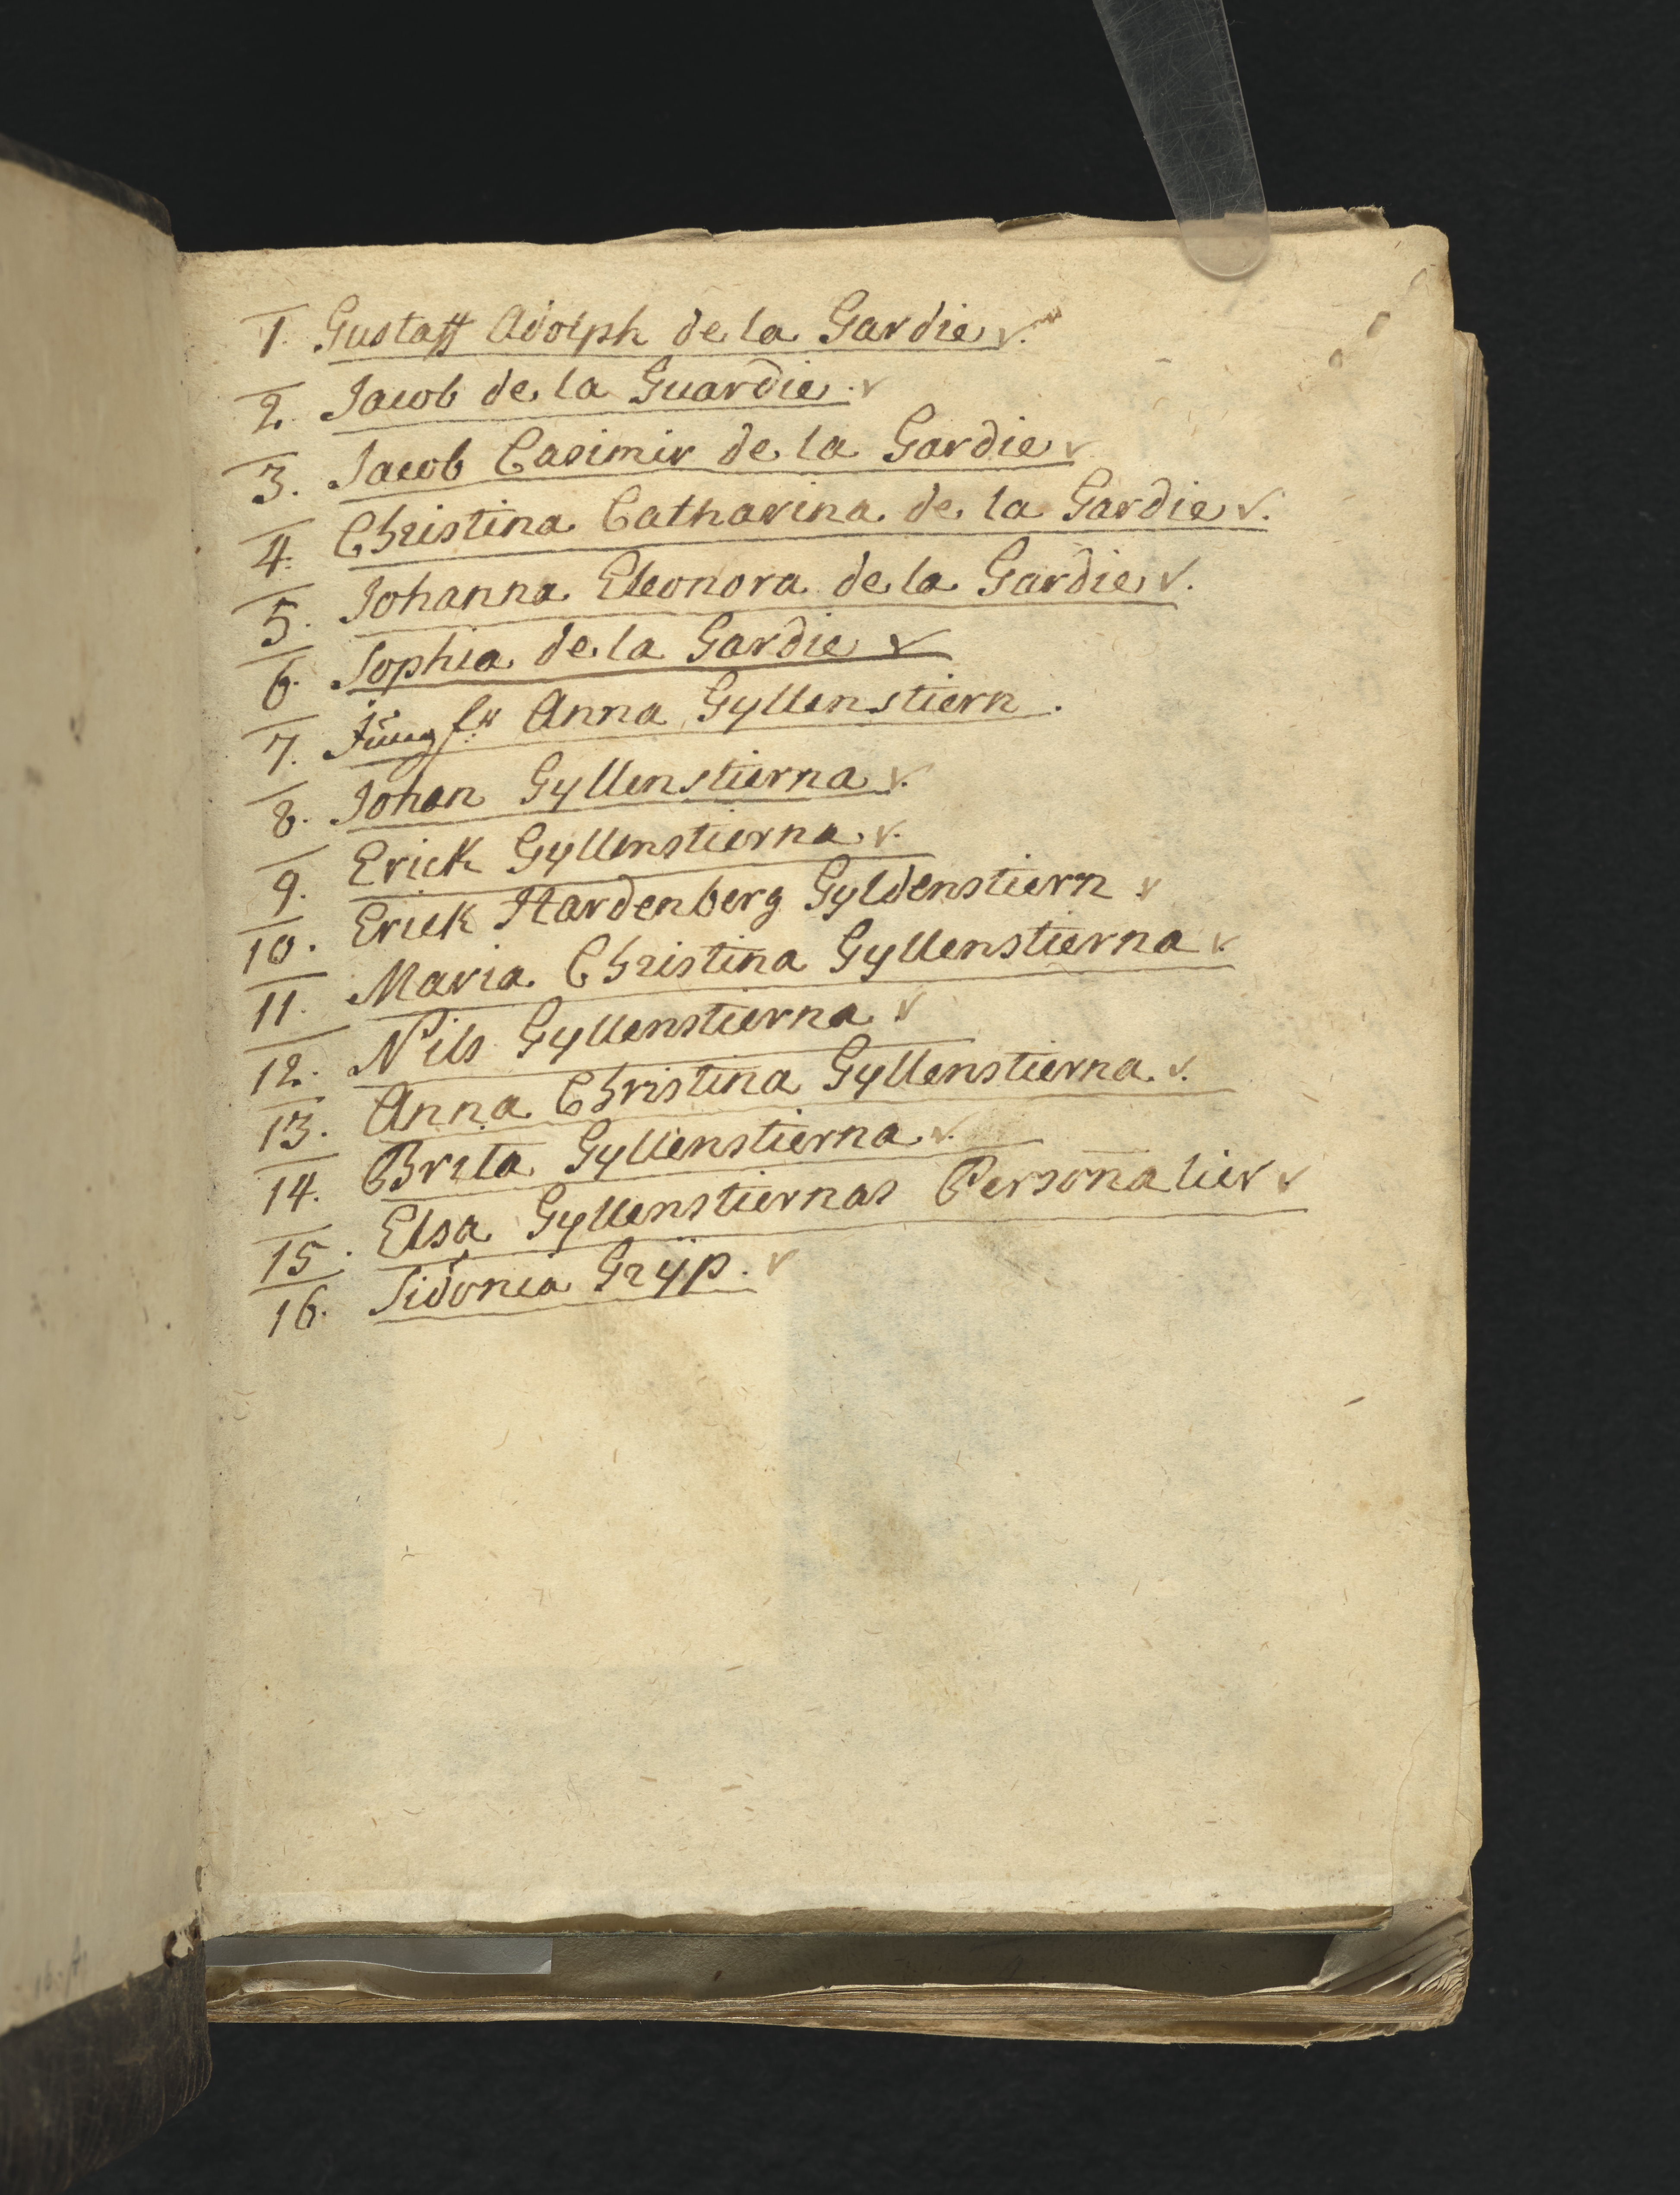 1. Gustaff Adolph de la Gardie v.
2. Jacob de la Guardie. v
3. Jacob Casimir de la Gardie v
4. Christina Catharina de la Gardie v.
5. Johanna Eleonora de la Gardie v.
6. Sophia de la Gardie v
7. Anna Gyllenstiern.
8. Johan Gyllenstierna v.
9. Erick Gyllenstierna v.
10. Erick Hardenberg Gyldenstiern v
11. Maria Christina Gyllenstierna v
12. Nils Gyllenstierna v
13. Anna Christina Gyllenstierna v.
14. Brita Gyllenstierna v.
15. Elsa Gyllenstiernas Personalier v
16. Sidonia Grijp. v